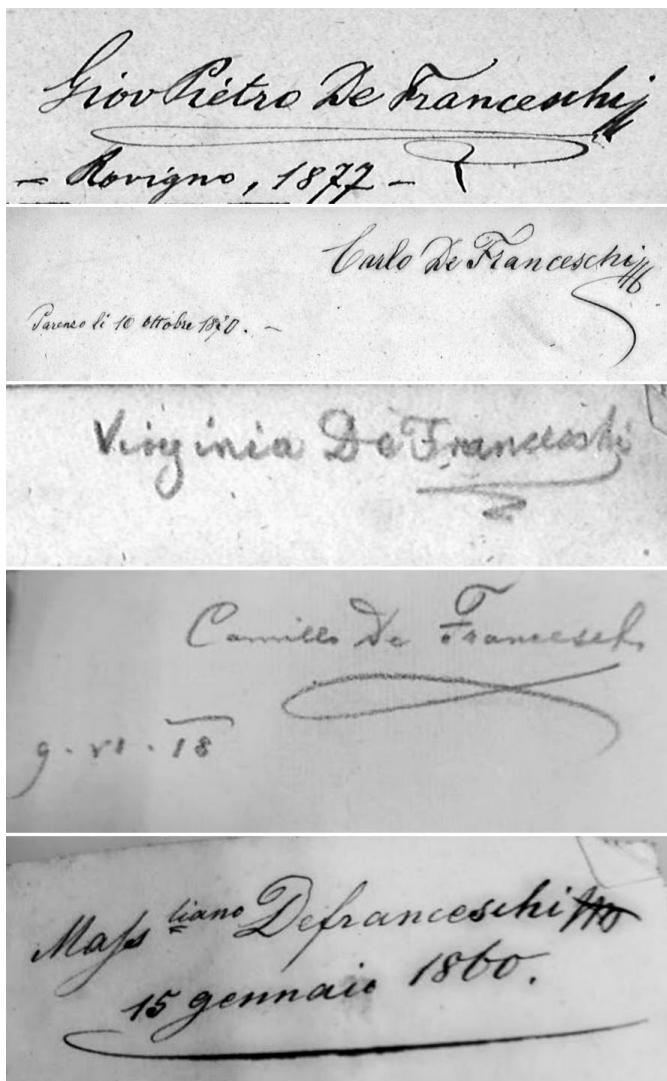 Giov Pietro De Franceschi
– Rovigno, 1877 –
Carlo De Franceschi
Parenzo li 10 ottobre 1870. –
Virginia De Franceschi
Camillo De Franceschi
9 · VI · 18
Mass liano Defranceschi
15 gennaio 1860.